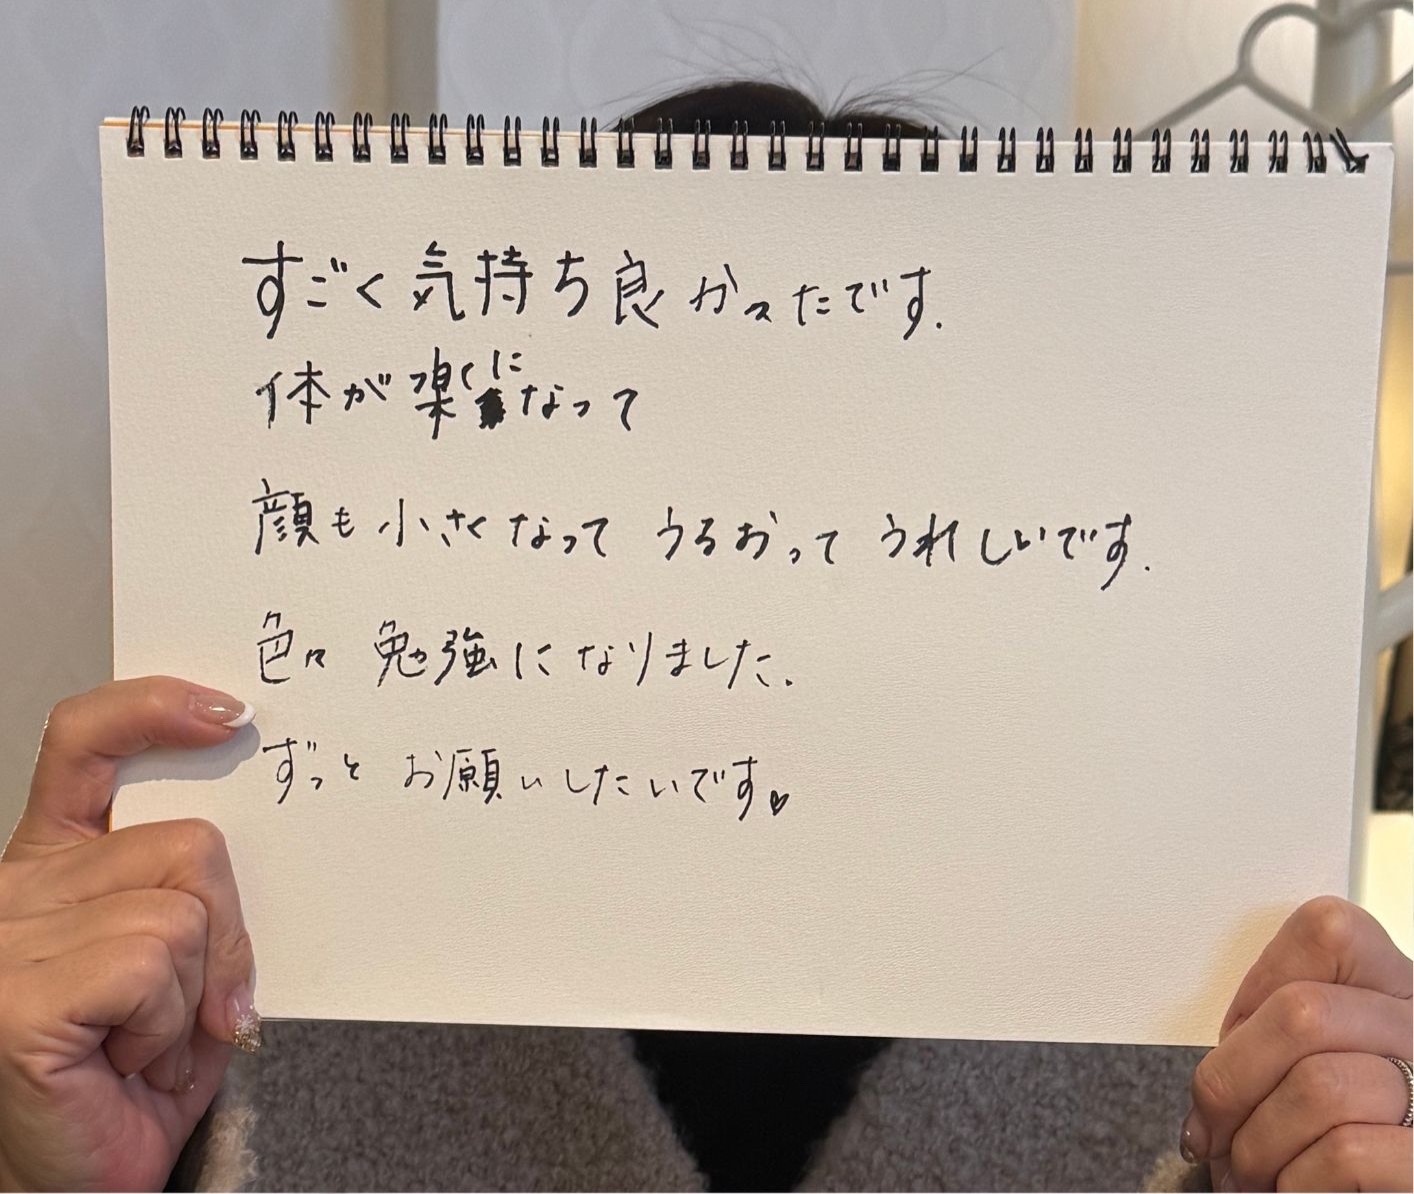 すごく気持ち良かったです.
体が楽になって
顔も小さくなって うるおって うれしいです.
色々 勉強になりました.
ずっと お願いしたいです♡